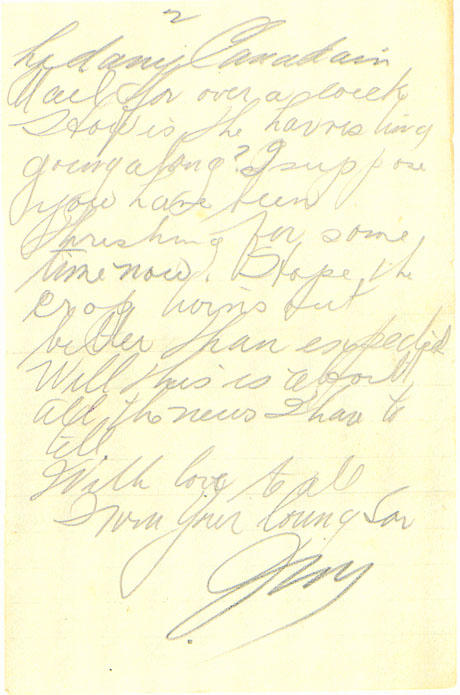 2
had any Canadain
Mail for over a week
How is the harvesting
going along? I suppose
you have been
thrashing for some
time now. Hope the
crop turns out
better than expected
Well this is about
all the news I have to
tell
With love to all
From your loving Son